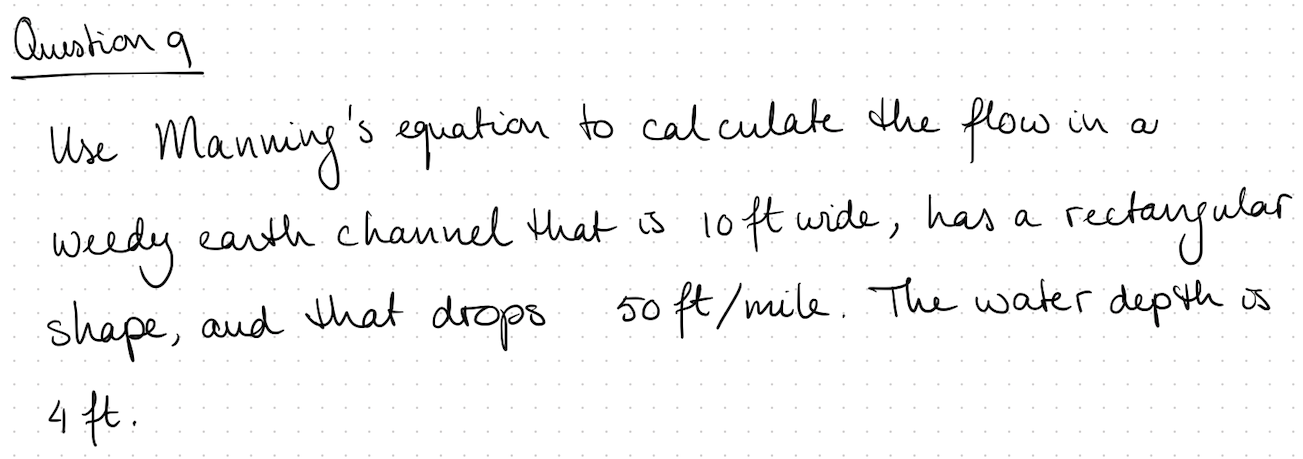 Question 9
Use Manning's equation to calculate the flow in a
weedy earth channel that is 10 ft wide, has a rectangular
shape, and that drops 50 ft/mile. The water depth is
4 ft.